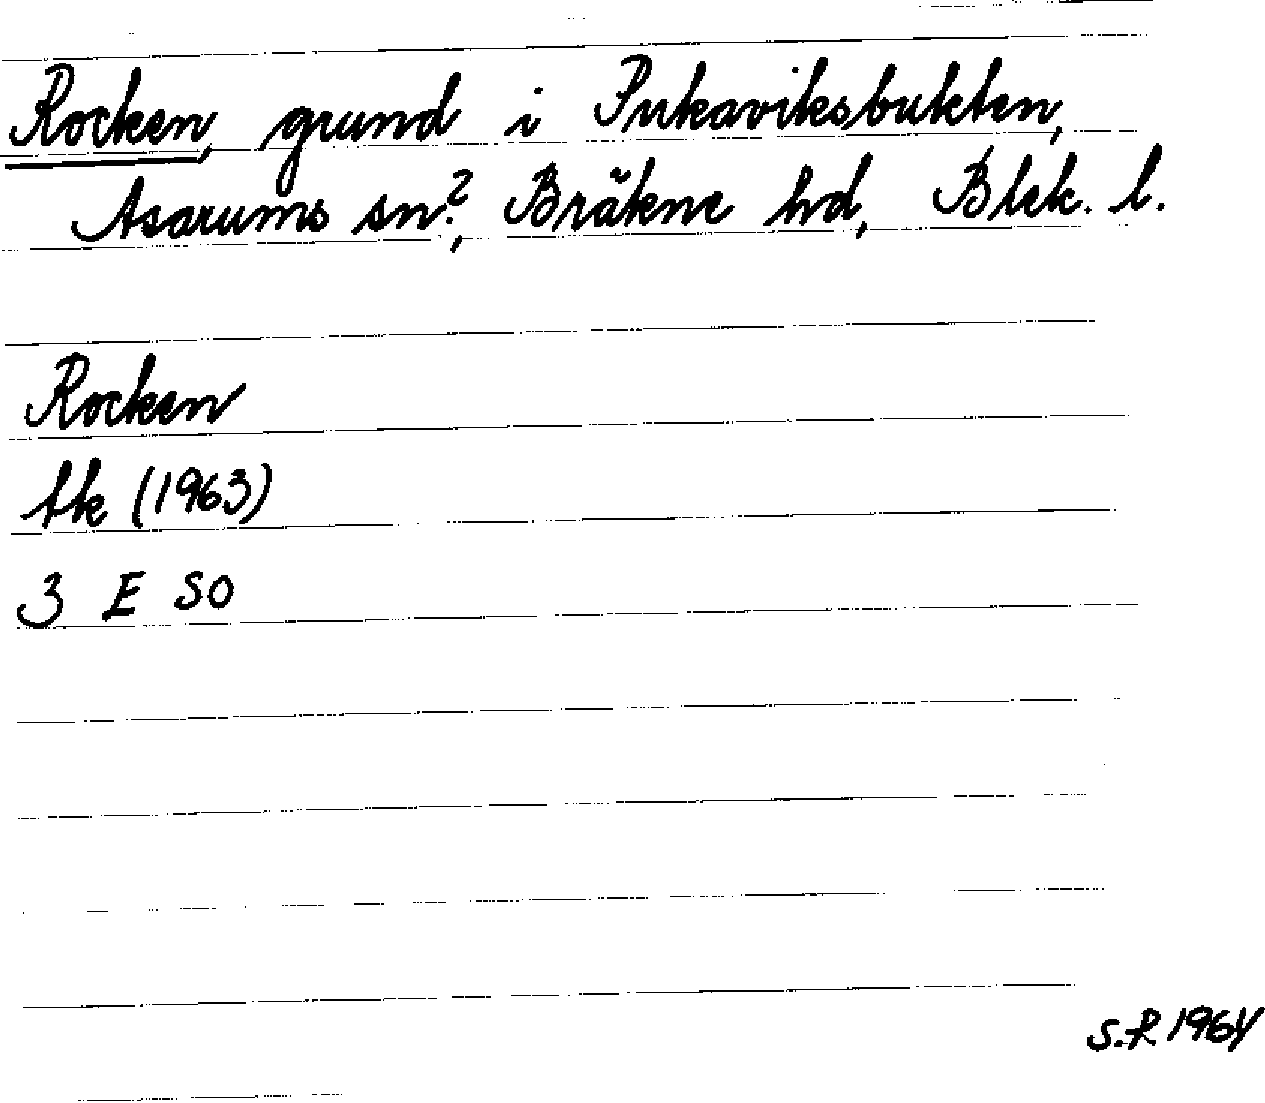 Rocken, grund i Pukaviksbukten,
Asarums sn?, Bräkne hd, Blek. l.
Rocken
tk (1963)
3 E SO
S.R 1964